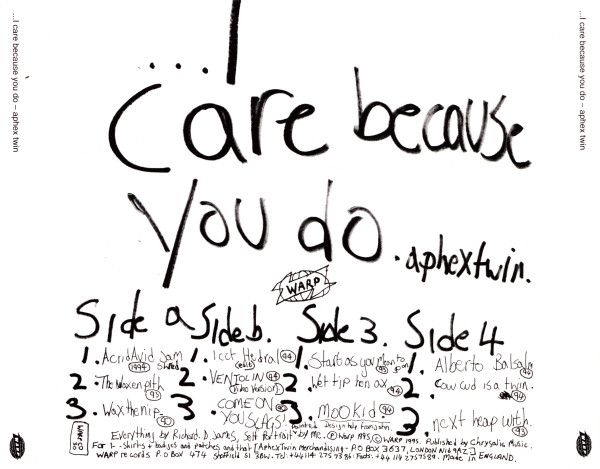 ...I care because you do – aphex twin
...I care because you do – aphex twin
...I
Care because
you do.
.aphextwin.
WARP
Side a
1. AcridAvid Jam Shred
1994
2. The Waxen pith
93
3. Wax the nip.
90
Side b.
1. Icct Hedral 94
(edit)
2. VENTOLIN 94
3 COME ON
YOU SLAGS!
Side 3.
1. Start as you mean to go on
93
2 Wet tip hen ax
94
3. Mookid 94
Side 4
1. Alberto Balsalm
94
2. Cow cud is a twin.
94
3. next heap with.
93
Everything by Richard. D. James, Self Portrait by Me. Ⓟ Warp 1995, © WARP 1995. Published by Chrysalis Music.
For T-Shirts + badges and patches and that [AphexTwin Merchandising - P.O BOX 3637, LONDON NW9AZ]
WARP records P.O BOX 474 Sheffield S1 3BW. Tel: +44 114 275 7586. Fads: +44 114 2757589. Made in ENGLAND.
WARPCD
30